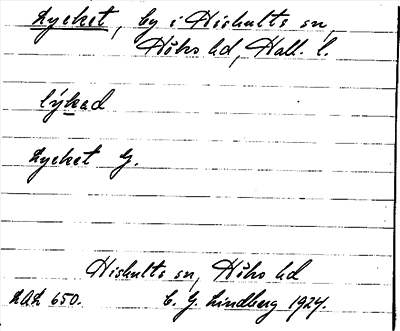 Lycket, by i Hishults sn,
Höks hd, Hall. l.
lýkəd
Lycket G.
Hishults sn, Höks hd
LAL 650. C. G. Lindberg 1924.